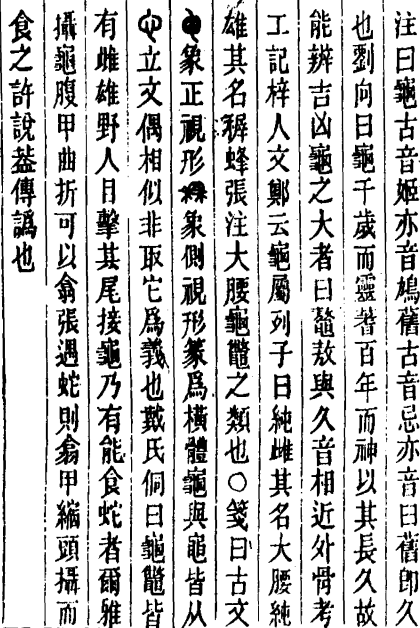 注曰龜古音姬亦音鳩舊古音忌亦音臼舊即久
也劉向曰龜千歲而靈蓍百年而神以其長久故
能辨吉凶龜之大者曰鼇敖與久音相近外骨考
工記梓人文鄭云龜屬列子曰純雌其名大腰純
雄其名稺蜂張注大腰龜鼈之類也○箋曰古文
象正視形象側視形篆爲橫體龜與黽皆从
立文偶相似非取它爲義也戴氏侗曰龜鼈皆
有雌雄野人目擊其尾接龜乃有能食蛇者爾雅
攝龜腹甲曲折可以翕張遇蛇則翕甲縮頭攝而
食之許說葢傳譌也